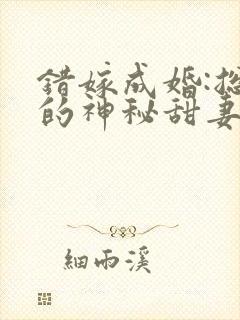 错嫁成婚:
的神秘甜妻
細雨溪